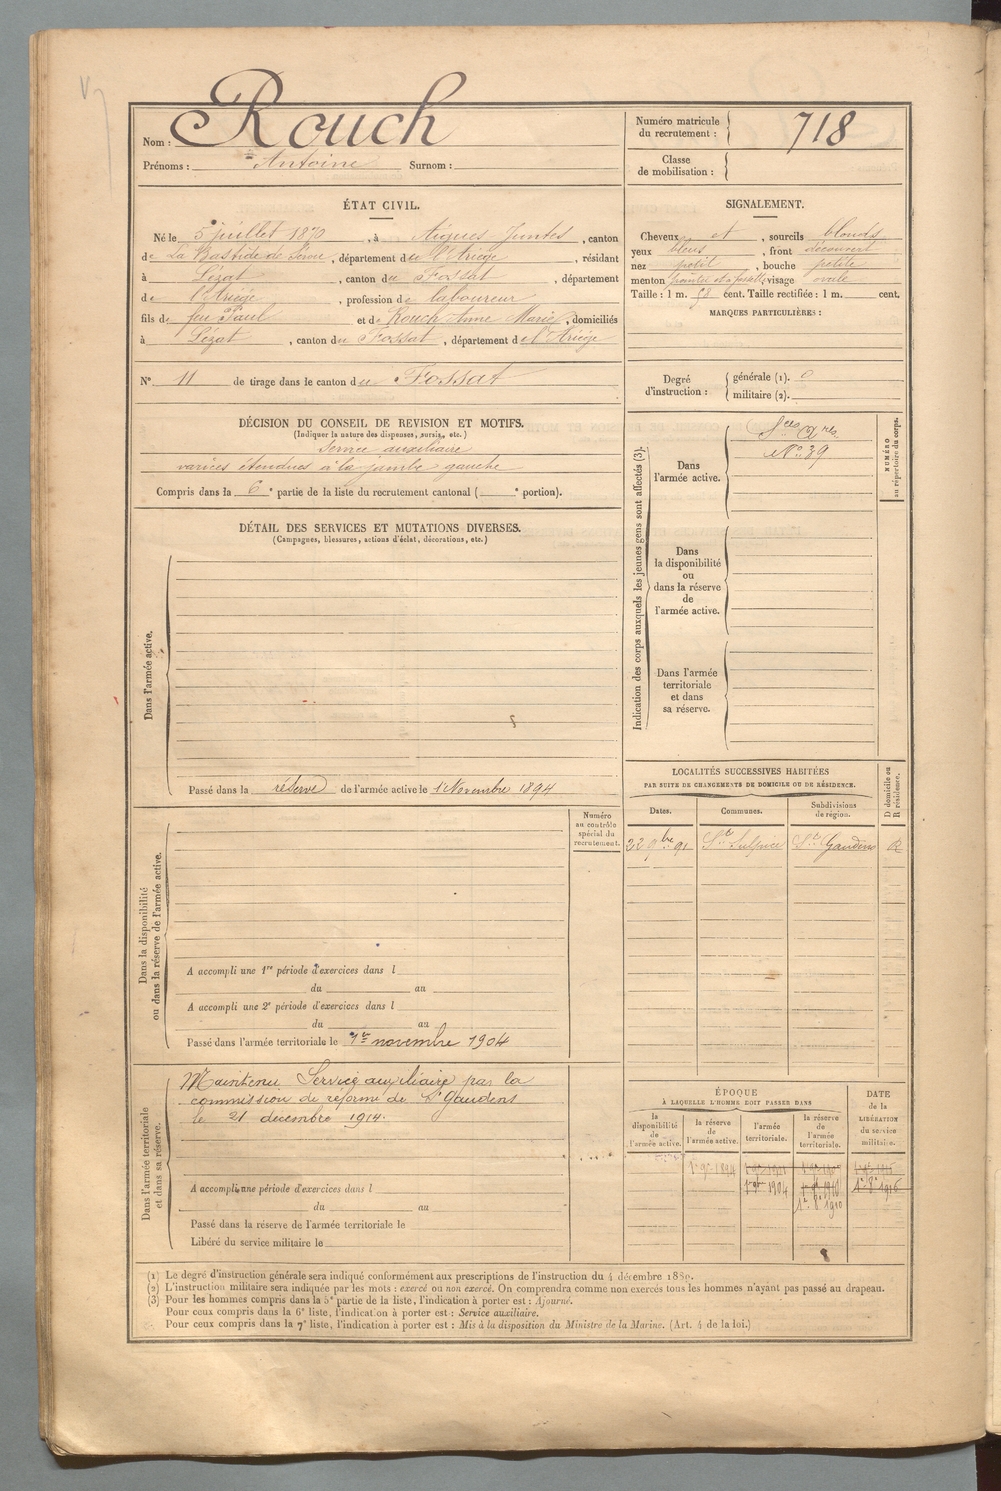 Nom : Rouch
Prénoms : Antoine Surnom :
Numéro matricule du recrutement : 718
Classe de mobilisation :
ÉTAT CIVIL.
Né le 5 juillet 1870, à Aigues-Juntes, canton
de La Bastide de Sérou, département de l'Ariège, résidant
à Lézat, canton du Fossat, département
de l'Ariège, profession de laboureur
fils de feu Paul et de Rouch Anne Marie, domiciliés
à Lézat, canton du Fossat, département de l'Ariège
N° 11 de tirage dans le canton du Fossat
SIGNALEMENT.
Cheveux et, sourcils blonds
yeux bleus, front découvert
nez petit, bouche petite
menton pointu et à fossette visage ovale
Taille : 1 m. 58 cent. Taille rectifiée : 1 m. cent.
MARQUES PARTICULIÈRES :
Degré d'instruction : générale (1). 0
militaire (2).
DÉCISION DU CONSEIL DE REVISION ET MOTIFS.
(Indiquer la nature des dispenses, sursis, etc.)
Service auxiliaire
varices étendues à la jambe gauche
Compris dans la 6e partie de la liste du recrutement cantonal ( e portion).
DÉTAIL DES SERVICES ET MUTATIONS DIVERSES.
(Campagnes, blessures, actions d'éclat, décorations, etc.)
Dans l'armée active.
Passé dans la réserve de l'armée active le 1er Novembre 1894
Indication des corps auxquels les jeunes gens sont affectés (3).
Dans l'armée active.
Sces Ares
No 39
Dans la disponibilité ou dans la réserve de l'armée active.
Dans l'armée territoriale et dans sa réserve.
NUMÉRO au répertoire du corps.
LOCALITÉS SUCCESSIVES HABITÉES
PAR SUITE DE CHANGEMENTS DE DOMICILE OU DE RÉSIDENCE.
Dates. Communes. Subdivisions de région. D domicile ou R résidence.
22 9bre 91 St Sulpice St Gaudens R
Dans la disponibilité ou dans la réserve de l'armée active.
Numéro au contrôle spécial du recrutement.
A accompli une 1re période d'exercices dans l
du au
A accompli une 2e période d'exercices dans l
du au
Passé dans l'armée territoriale le 1er novembre 1904
Dans l'armée territoriale et dans sa réserve.
Maintenu Service auxiliaire par la
commission de réforme de St Gaudens
le 21 décembre 1914.
A accompli une période d'exercices dans l
du au
Passé dans la réserve de l'armée territoriale le
Libéré du service militaire le
ÉPOQUE
À LAQUELLE L'HOMME DOIT PASSER DANS
la disponibilité de l'armée active.
la réserve de l'armée active.
l'armée territoriale.
la réserve de l'armée territoriale.
DATE de la LIBÉRATION du service militaire.
1er 9e 1894
1er 9bre 1904
1er 8e 1910
1er 8e 1916
(1) Le degré d'instruction générale sera indiqué conformément aux prescriptions de l'instruction du 4 décembre 1889.
(2) L'instruction militaire sera indiquée par les mots : exercé ou non exercé. On comprendra comme non exercés tous les hommes n'ayant pas passé au drapeau.
(3) Pour les hommes compris dans la 5e partie de la liste, l'indication à porter est : Ajourné.
Pour ceux compris dans la 6e liste, l'indication à porter est : Service auxiliaire.
Pour ceux compris dans la 7e liste, l'indication à porter est : Mis à la disposition du Ministre de la Marine. (Art. 4 de la loi.)